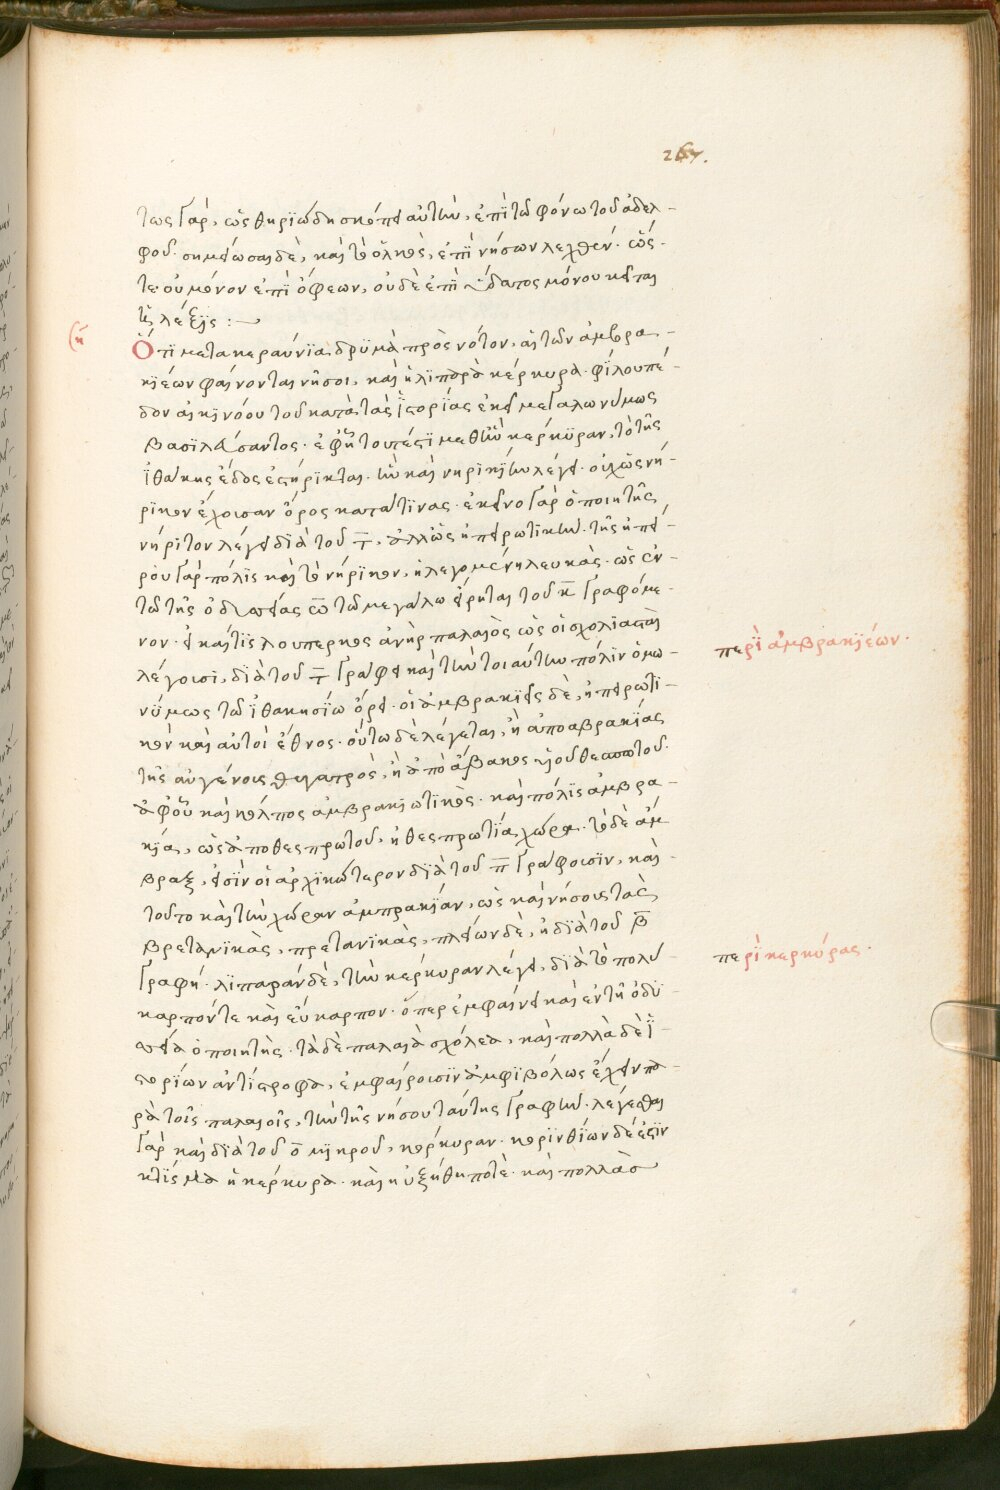 267.
τως γάρ, ὡς θηριώδη σκόπει αὐτὴν, ἐπὶ τῶ φόνω τοῦ ἀδελ-
φοῦ. σημείωσαι δὲ, καὶ τὸ ὁλκὸς, ἐπὶ νήσων λεχθέν. ὥς-
τε οὐ μόνον ἐπὶ ὄφεων, οὐδὲ ἐπὶ ὕδατος μόνου κεῖται
ἡ λέξις :-
Ὅτι μετα κεραύνια δρϋμὰ πρὸς νότον, αἱ τῶν ἀμβρα-
κιέων φαίνονται νῆσοι, καὶ ἡ λιπαρὰ κέρκυρα. φίλου πέ-
δον ἀλκινόου τοῦ κατὰ τὰς ἱστορίας ἐκεῖ μεγαλωνύμως
βασιλεύσαντος. ἐφ' ἧ τουτέστι μεθ' ἣν κέρκυραν, τὸ τῆς
ἰθάκης ἕδος ἐστήρικται. ἣν καὶ νηρικίην λέγει. οὐχ ὡς νή-
ρικον ἔχουσαν ὄρος κατά τινας. ἐκεῖνο γὰρ ὁ ποιητὴς
νήριτον λέγει διὰ τοῦ τ, ἀλλ' ὡς ἠπειρωτικὴν. τῆς ἠπεί-
ρου γὰρ πόλις καὶ τὸ νήρικον, ἡ λεγομένη λευκάς. ὡς ἐν
τῶ τῆς ὀδυσσείας ω τῶ μεγάλω εἴρηται τοῦ κ γραφόμε-
νον. εἰ καί τις λούπερκος ἀνὴρ παλαιὸς ὡς οἱ σχολιασταὶ
λέγουσι, διὰ τοῦ τ γράφει καὶ τὴν τοιαύτην πόλιν ὁμω-
νύμως τῶ ἰθακησίω ὄρει. οἱ ἀμβρακιεῖς δὲ, ἠπειρωτι-
κὸν καὶ αὐτοὶ ἔθνος. οὕτω δὲ λέγεται, ἢ ἀπο ἀβρακίας
τῆς αὐγέου θυγατρὸς, ἢ ἀπὸ ἄβακος υἱοῦ θεσπρωτοῦ.
ἀφ' οὗ καὶ κόλπος ἀμβρακιωτικὸς. καὶ πόλις ἀμβρα-
κία, ὡς ἀπο θεσπρωτοῦ, ἡ θεσπρωτία χώρα. τὸ δὲ ἄμ
βραξ, εἰσὶν οἳ ἀρχικώτερον διὰ τοῦ π γράφουσιν, καὶ
τοῦτο καὶ τὴν χώραν ἀμπρακίαν, ὡς καὶ νήσους τὰς
βρετανικὰς, πρετανικὰς, πλείων δὲ, ἡ διὰ τοῦ β
γραφή. λιπαρὰν δὲ, τὴν κέρκυραν λέγει, διὰ τὸ πολύ
καρπόν τε καὶ εὔκαρπον. ὅπερ ἐμφαίνει καὶ ἐν τῆ ὀδυ
σσεία ὁ ποιητὴς. τὰ δὲ παλαιὰ σχόλια, καὶ πολλὰ δὲ ἱ-
στορίων ἀντίγραφα, ἐμφαίνουσιν ἀμφιβόλως ἔχειν πα-
ρὰ τοῖς παλαιοῖς, τὴν τῆς νήσου ταύτης γραφὴν. λέγεσθαι
γὰρ καὶ διὰ τοῦ ο μικροῦ, κόρκυραν. κορινθίων δέ ἐστιν
κτίσμα ἡ κέρκυρα. καὶ ηὐξήθη ποτὲ. καὶ πολλὰς
περὶ ἀμβρακιέων.
περὶ κερκύρας.